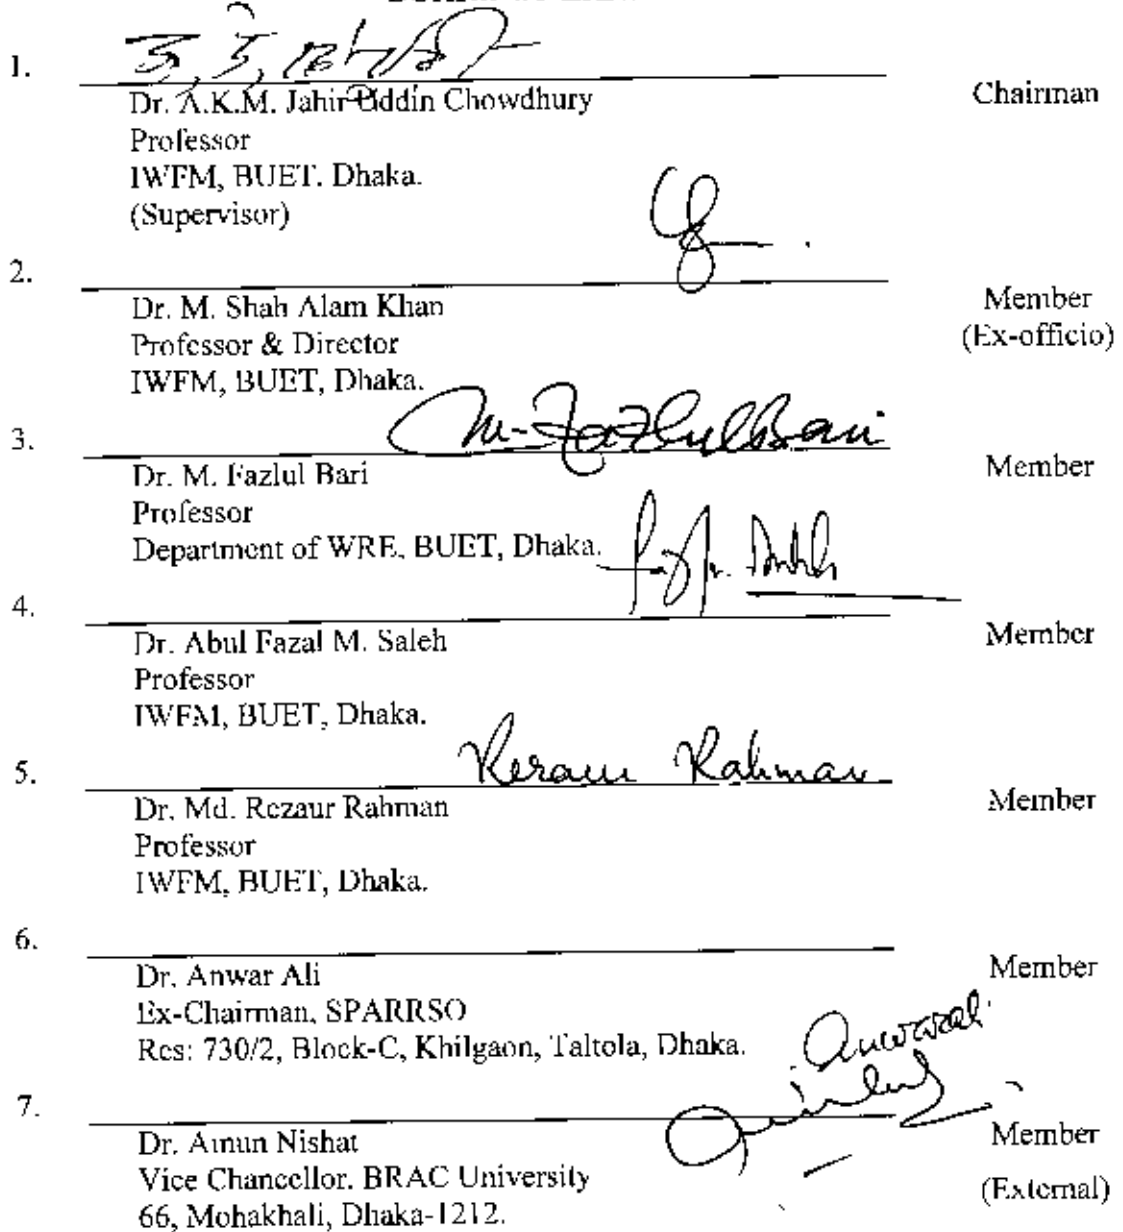 1.
Dr. A.K.M. Jahir Uddin Chowdhury
Professor
IWFM, BUET. Dhaka.
(Supervisor)
Chairman
2.
Dr. M. Shah Alam Khan
Professor & Director
IWFM, BUET, Dhaka.
Member
(Ex-officio)
3.
M. Fazlul Bari
Dr. M. Fazlul Bari
Professor
Department of WRE, BUET, Dhaka.
Member
4.
Dr. Abul Fazal M. Saleh
Professor
IWFM, BUET, Dhaka.
Member
5.
Rezaur Rahman
Dr. Md. Rezaur Rahman
Professor
IWFM, BUET, Dhaka.
Member
6.
Dr. Anwar Ali
Ex-Chairman, SPARRSO
Res: 730/2, Block-C, Khilgaon, Taltola, Dhaka.
Member
Anwar Ali
7.
Dr. Ainun Nishat
Vice Chancellor. BRAC University
66, Mohakhali, Dhaka-1212.
Member
(External)